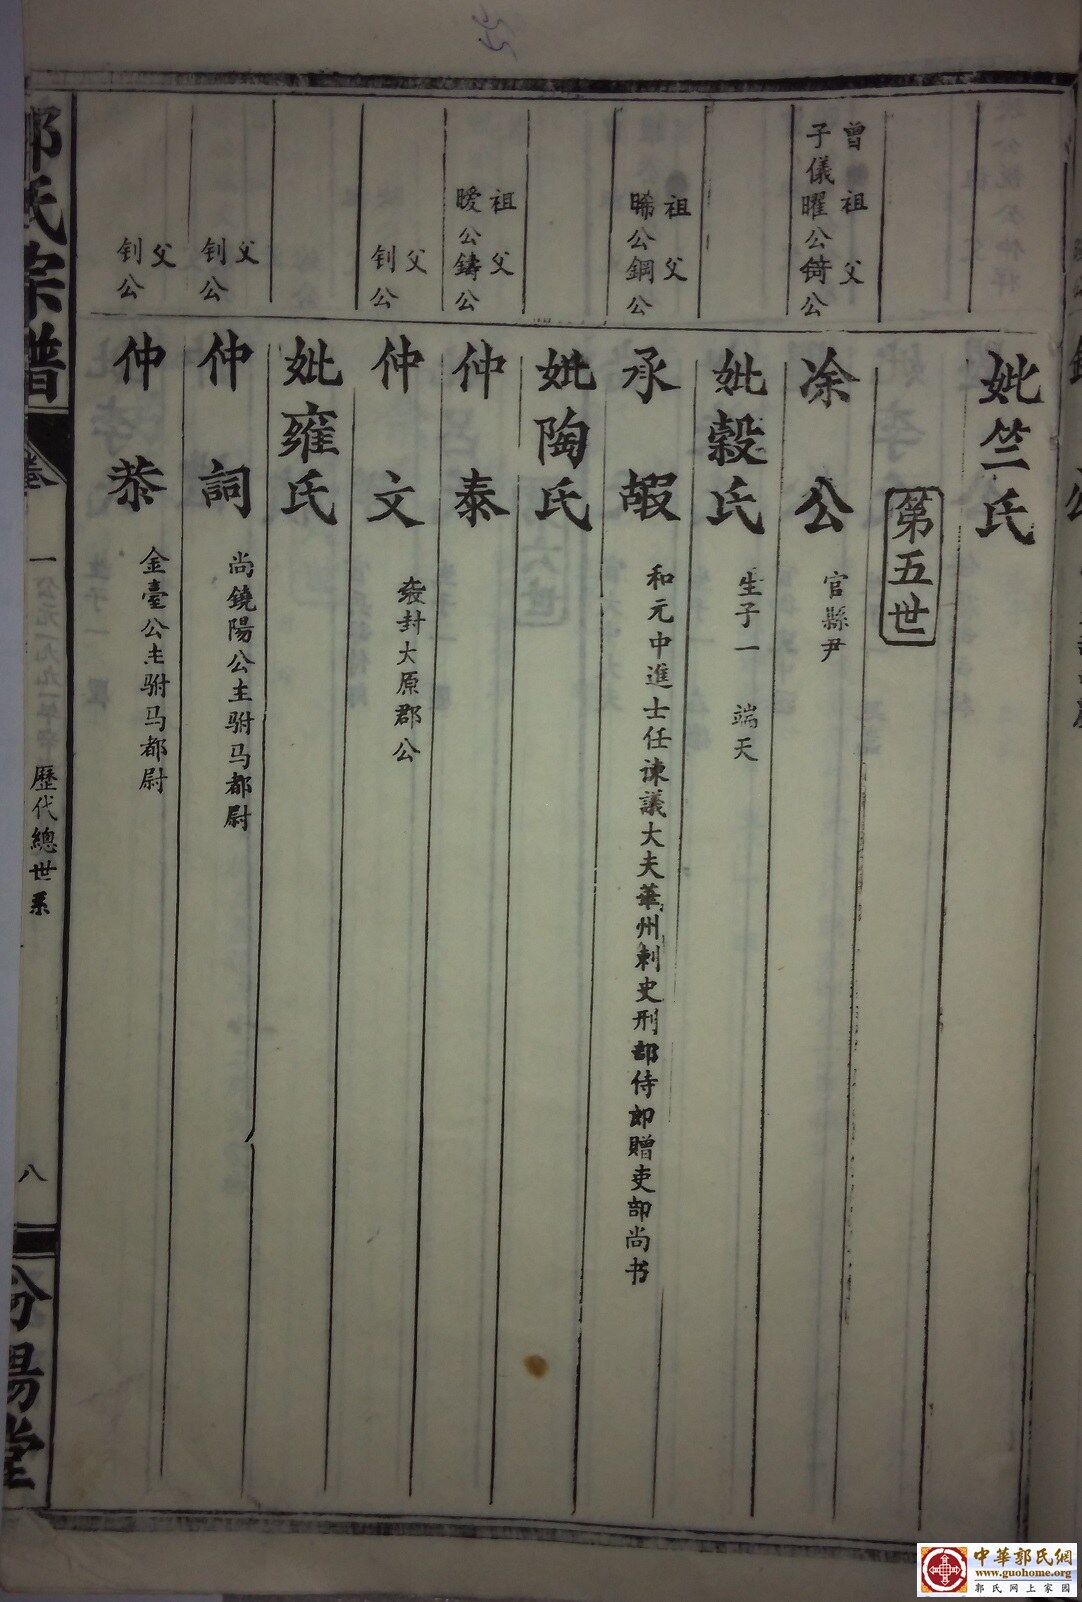 妣竺氏
第五世
曾祖 父
子儀曜公錡公
凃公
官縣尹
妣穀氏
生子一 端天
祖 父
晞公鋼公
承嘏
和元中進士任諫議大夫華州刺史刑部侍郎贈吏部尚书
妣陶氏
祖 父
曖公鑄公
仲泰
父
钊公
仲文
袭封大原郡公
妣雍氏
父
钊公
仲詞
尚鐃陽公主駙马都尉
父
钊公
仲恭
金臺公主駙马都尉
郭氏宗譜
卷一
公元一九九一年辛
歷代總世系
八
汾陽堂
中華郭氏網
www.guohome.org
郭氏网上家园